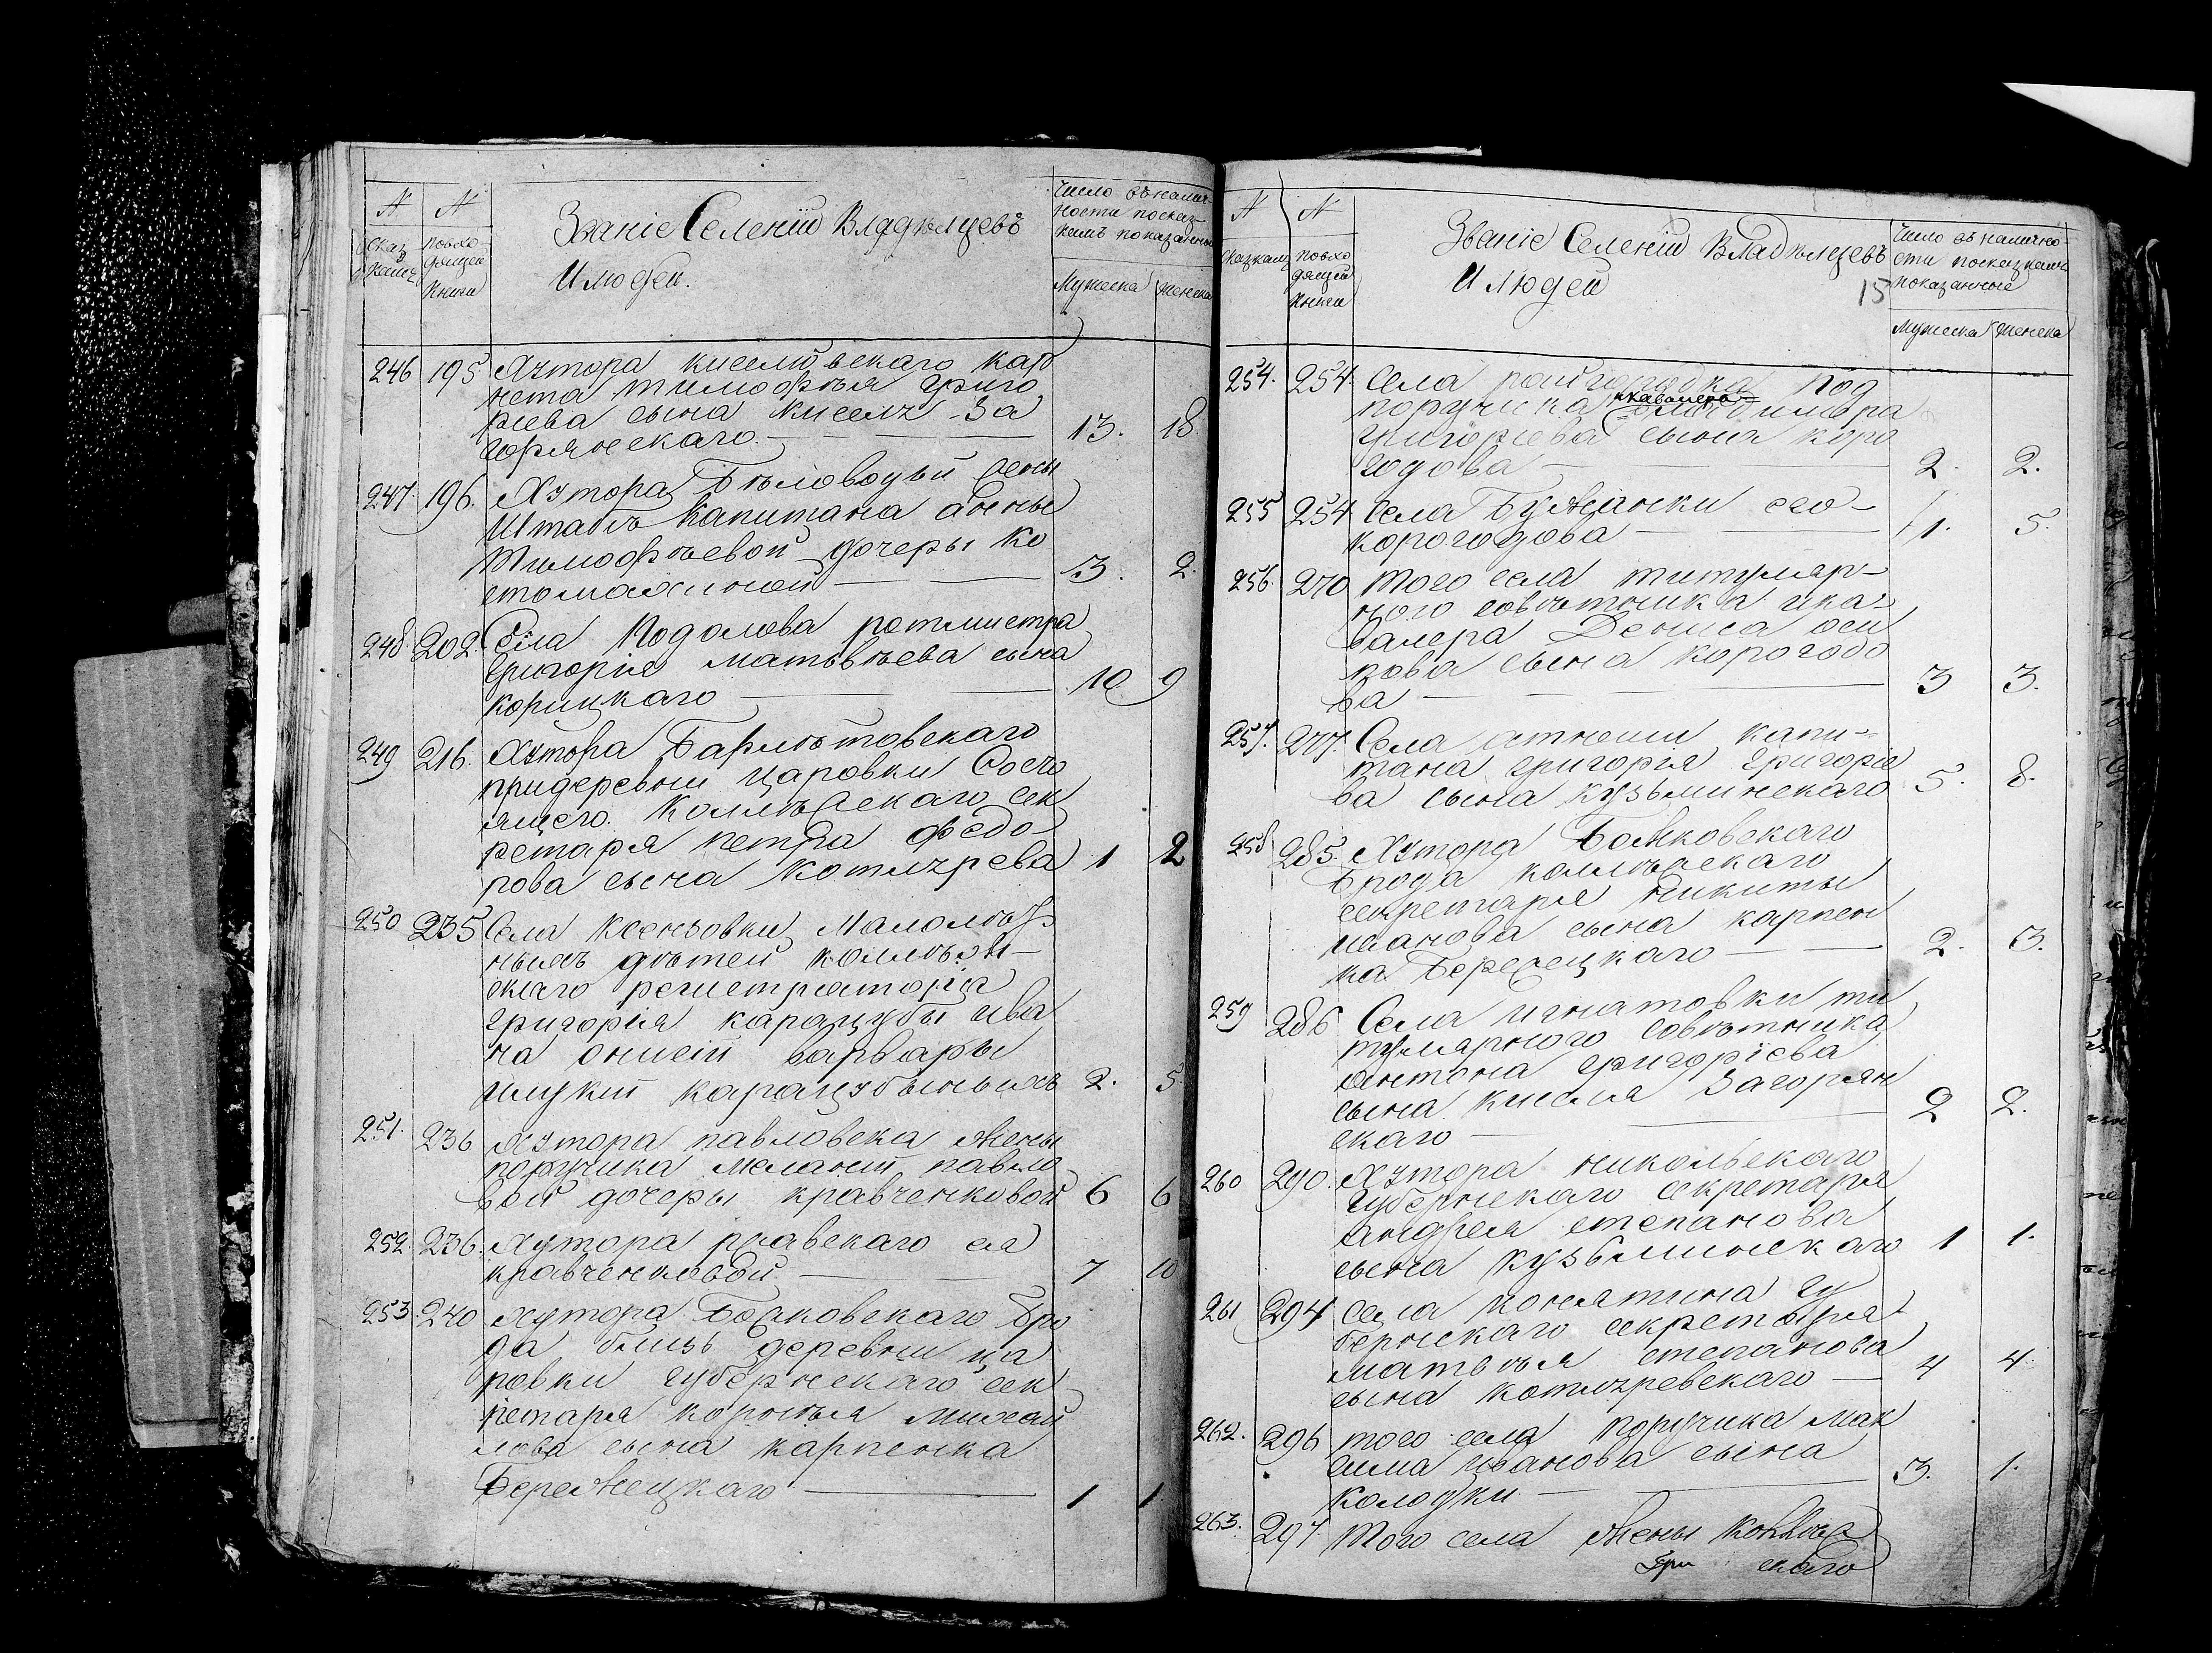 N N Званіе Селеній Владѣльцевъ Число въ налич-
И людей. ности посказ-
Сказкамъ повхо камъ показанныя
дящей
книги Мужеска Женска
246 195 Хутора киселювскаго кор
нета тимофѣя григо
ріева сына киселя За
горянскаго — 13. 18.
247. 196. Хутора Бѣловодъй жены
Штабъ Капитана анны
Тимофѣевой дочеры ко
стомахиной — 3. 2.
248. 202. Села Подолова ротмистра
Григорія матвѣева сына
корицкаго — 10 9
249 216. Хутора Бармѣтовскаго
придеревни царовки Состо
ящего Коллѣжскаго сек
ретаря петра федо-
рова сына котлярева 1 2
250 235 Села Ксензовки Малолѣт
ныхъ дѣтей коллѣжъ-
скаго регистратора
григорія карацубы ива
на онисей варвары
карацубиныхъ 2. 5
251. 236 Хутора павловска жены
поручика меланіи павло
вой дочеры кравченковой 6 6
252. 236. Хутора равскаго ея
кравченковой — 7 10
253. 240 Хутора Божковскаго бро
да близь деревни ца
ровки губернскаго сек
ретаря корнѣя михай
лова сына карпенка
Бережецкаго — 1 1
N N Званіе Селеній Владѣльцевъ Число въ налично-
И Людей 15 сти посказкамъ
Сказкамъ повхо показанные
дящей
книги Мужеска Женска
254. 254. Села райгородка под
поручика кавалера владимера
григорьева сына коро
годова — 2. 2.
255 254 Села Бужанки его-
корогодова — 1. 5.
256. 270 того села титуляр-
ного совѣтника и ка-
валера Дениса оси
пова сына корогодо
ва — 3 3.
257. 277. Села атюши капи-
тана григорія григоріе
ва сына кузьминскаго 5. 8.
258 285. Хутора Божковскаго
брода коллѣжскаго
секретаря никиты
иванова сына карпен
ка Бережецкаго — 2. 3.
259 286 Села игнатовки ти
тулярного совѣтника
антона григорієва
сына киселя Загорян
скаго — 2 2.
260 290. Хутора никольскаго
губернскаго секретаря
андрея степанова
сына кузьминскаго 1 1.
261 294 Села конятина гу
бернскаго секретаря
матвѣя степанова
сына котляревскаго — 4 4.
262. 296 того села поручика мак
сима иванова сына
колодки — 3. 1.
263. 297. того села жены
скаго